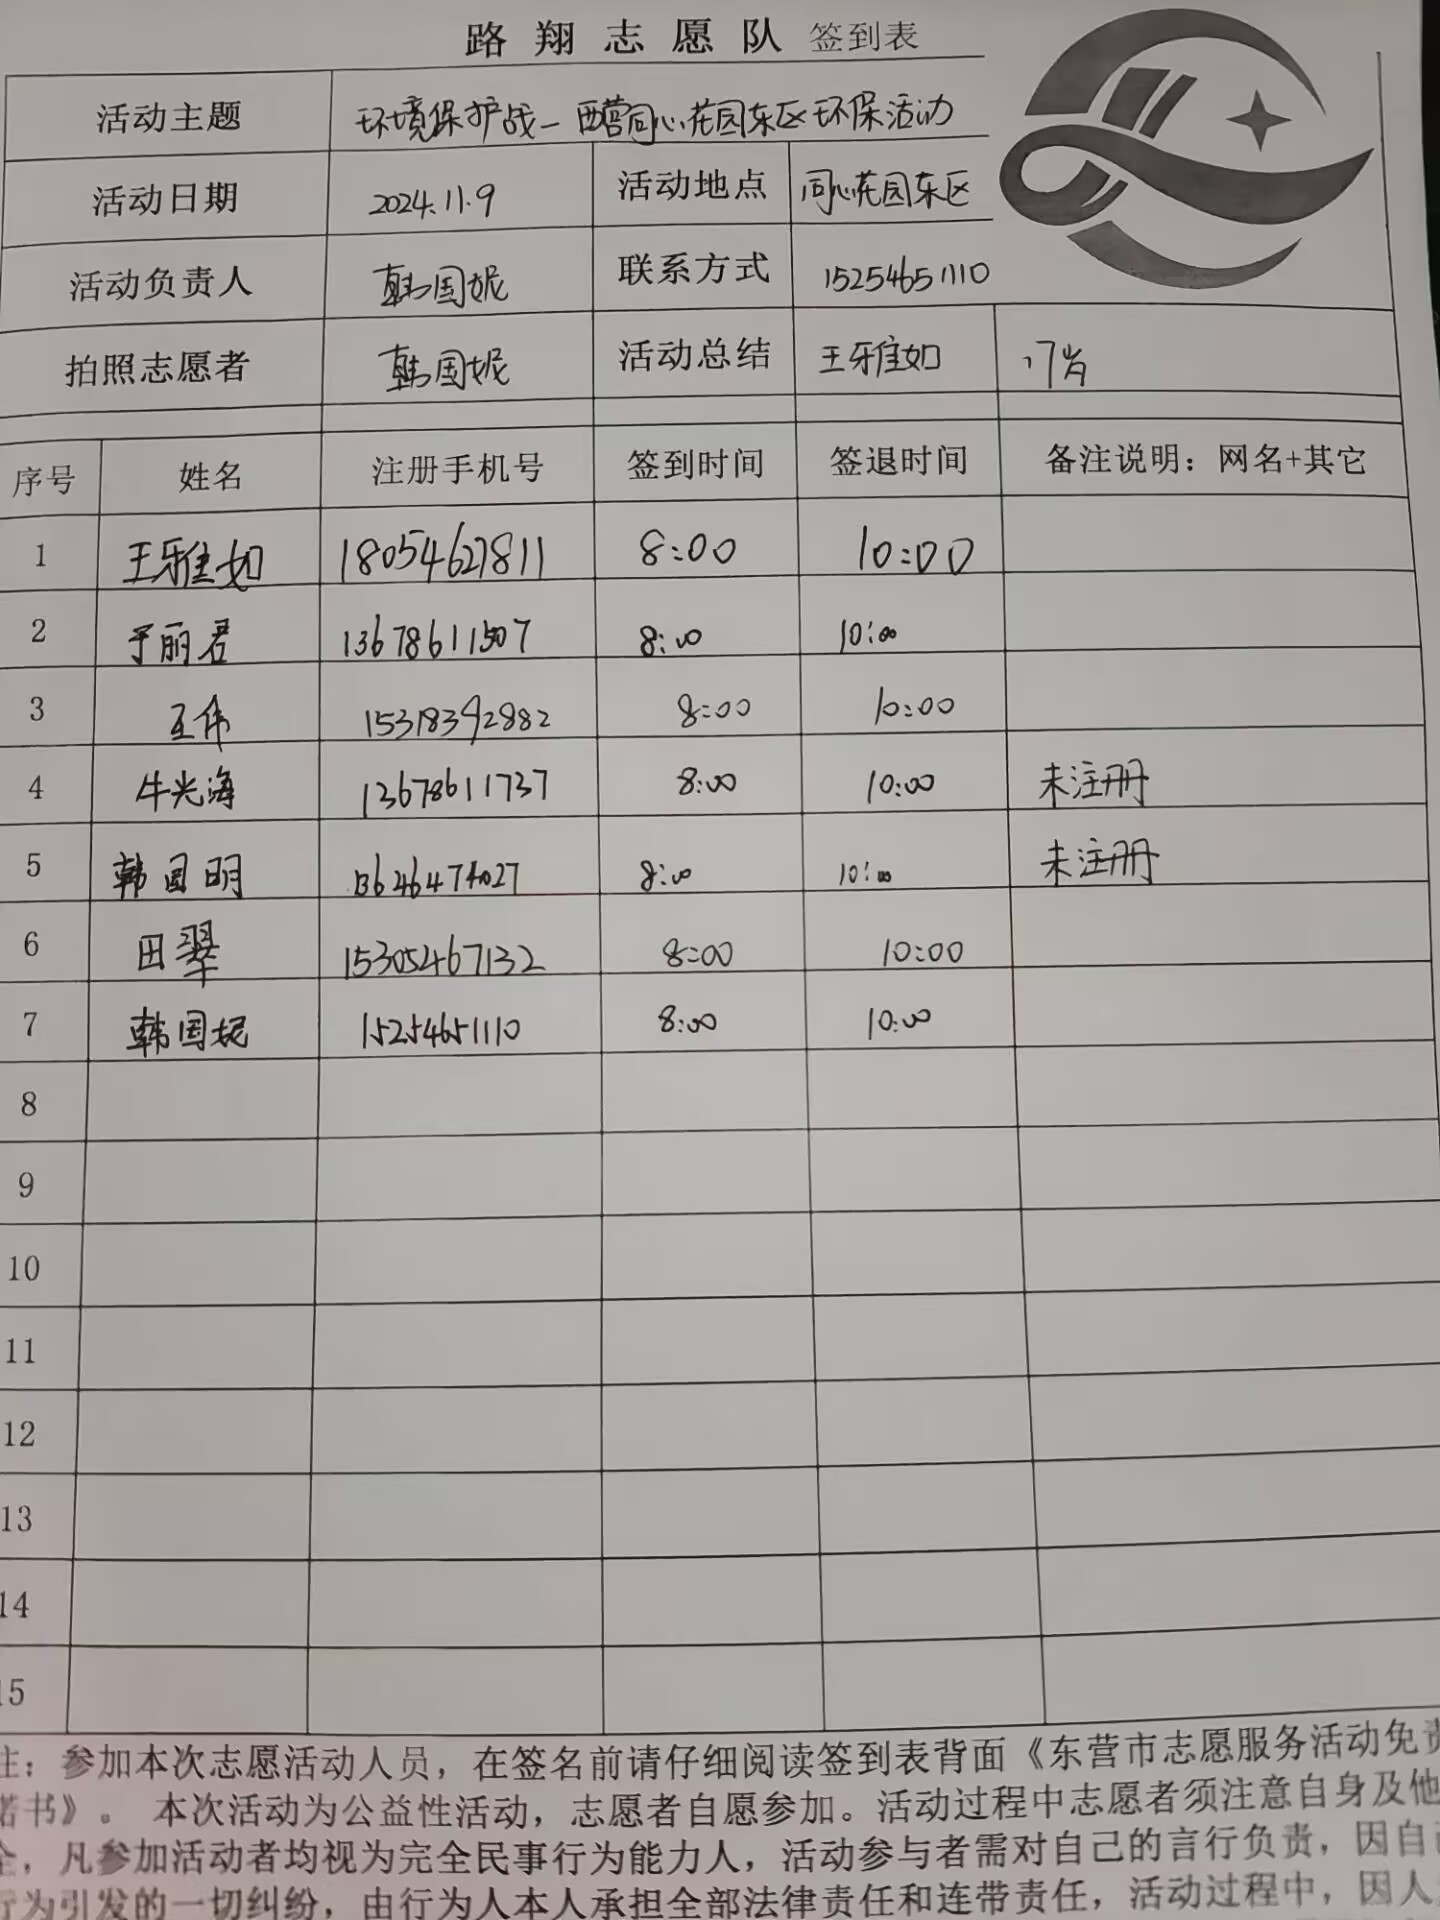 路翔志愿队 签到表
活动主题 环境保护战—西营同心花园东区环保活动
活动日期 2024.11.9 活动地点 同心花园东区
活动负责人 韩国妮 联系方式 15254651110
拍照志愿者 韩国妮 活动总结 王雅如 17岁
序号 姓名 注册手机号 签到时间 签退时间 备注说明：网名+其它
1 王雅如 18054627811 8:00 10:00
2 于丽君 13678611507 8:00 10:00
3 王伟 15318392882 8:00 10:00
4 牛光海 13678611737 8:00 10:00 未注册
5 韩国明 8:00 10:00 未注册
6 田翠 15305467132 8:00 10:00
7 韩国妮 15254651110 8:00 10:00
8
9
10
11
12
13
14
15
注：参加本次志愿活动人员，在签名前请仔细阅读签到表背面《东营市志愿服务活动免责
诺书》。 本次活动为公益性活动，志愿者自愿参加。活动过程中志愿者须注意自身及他
全，凡参加活动者均视为完全民事行为能力人，活动参与者需对自己的言行负责，因自己
行为引发的一切纠纷，由行为人本人承担全部法律责任和连带责任，活动过程中，因人